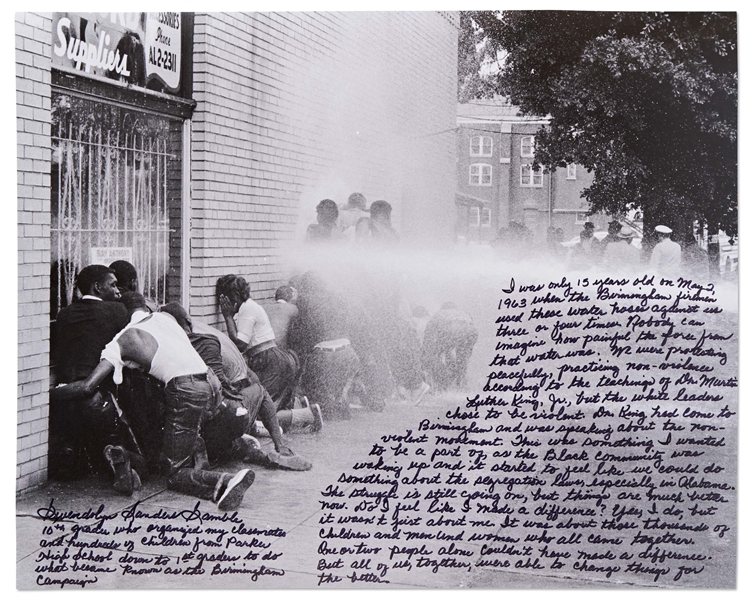 Suppliers
ESSORIES
Phone
AL2-2311
I was only 15 years old on May 2,
1963 when the Birmingham firemen
used these water hoses against us
three or four times. Nobody can
imagine how painful the force from
that water was. We were protesting
peacefully, practicing non-violence
according to the teachings of Dr. Martin
Luther King, Jr., but the white leaders
chose to be violent. Dr. King had come to
Birmingham and was speaking about the non-
violent movement. This was something I wanted
to be a part of, as the Black community was
waking up and it started to feel like we could do
something about the segregation laws, especially in Alabama.
The struggle is still going on, but things are much better
now. Do I feel like I made a difference? Yes, I do, but
it wasn't just about me. It was about those thousands of
children and men and women who all came together.
One or two people alone couldn't have made a difference.
But all of us, together, were able to change things for
the better.
Gwendolyn Sanders Gamble
10th grader who organized my classmates
and hundreds of children from Parker
High School down to 1st graders to do
what became known as the Birmingham
Campaign